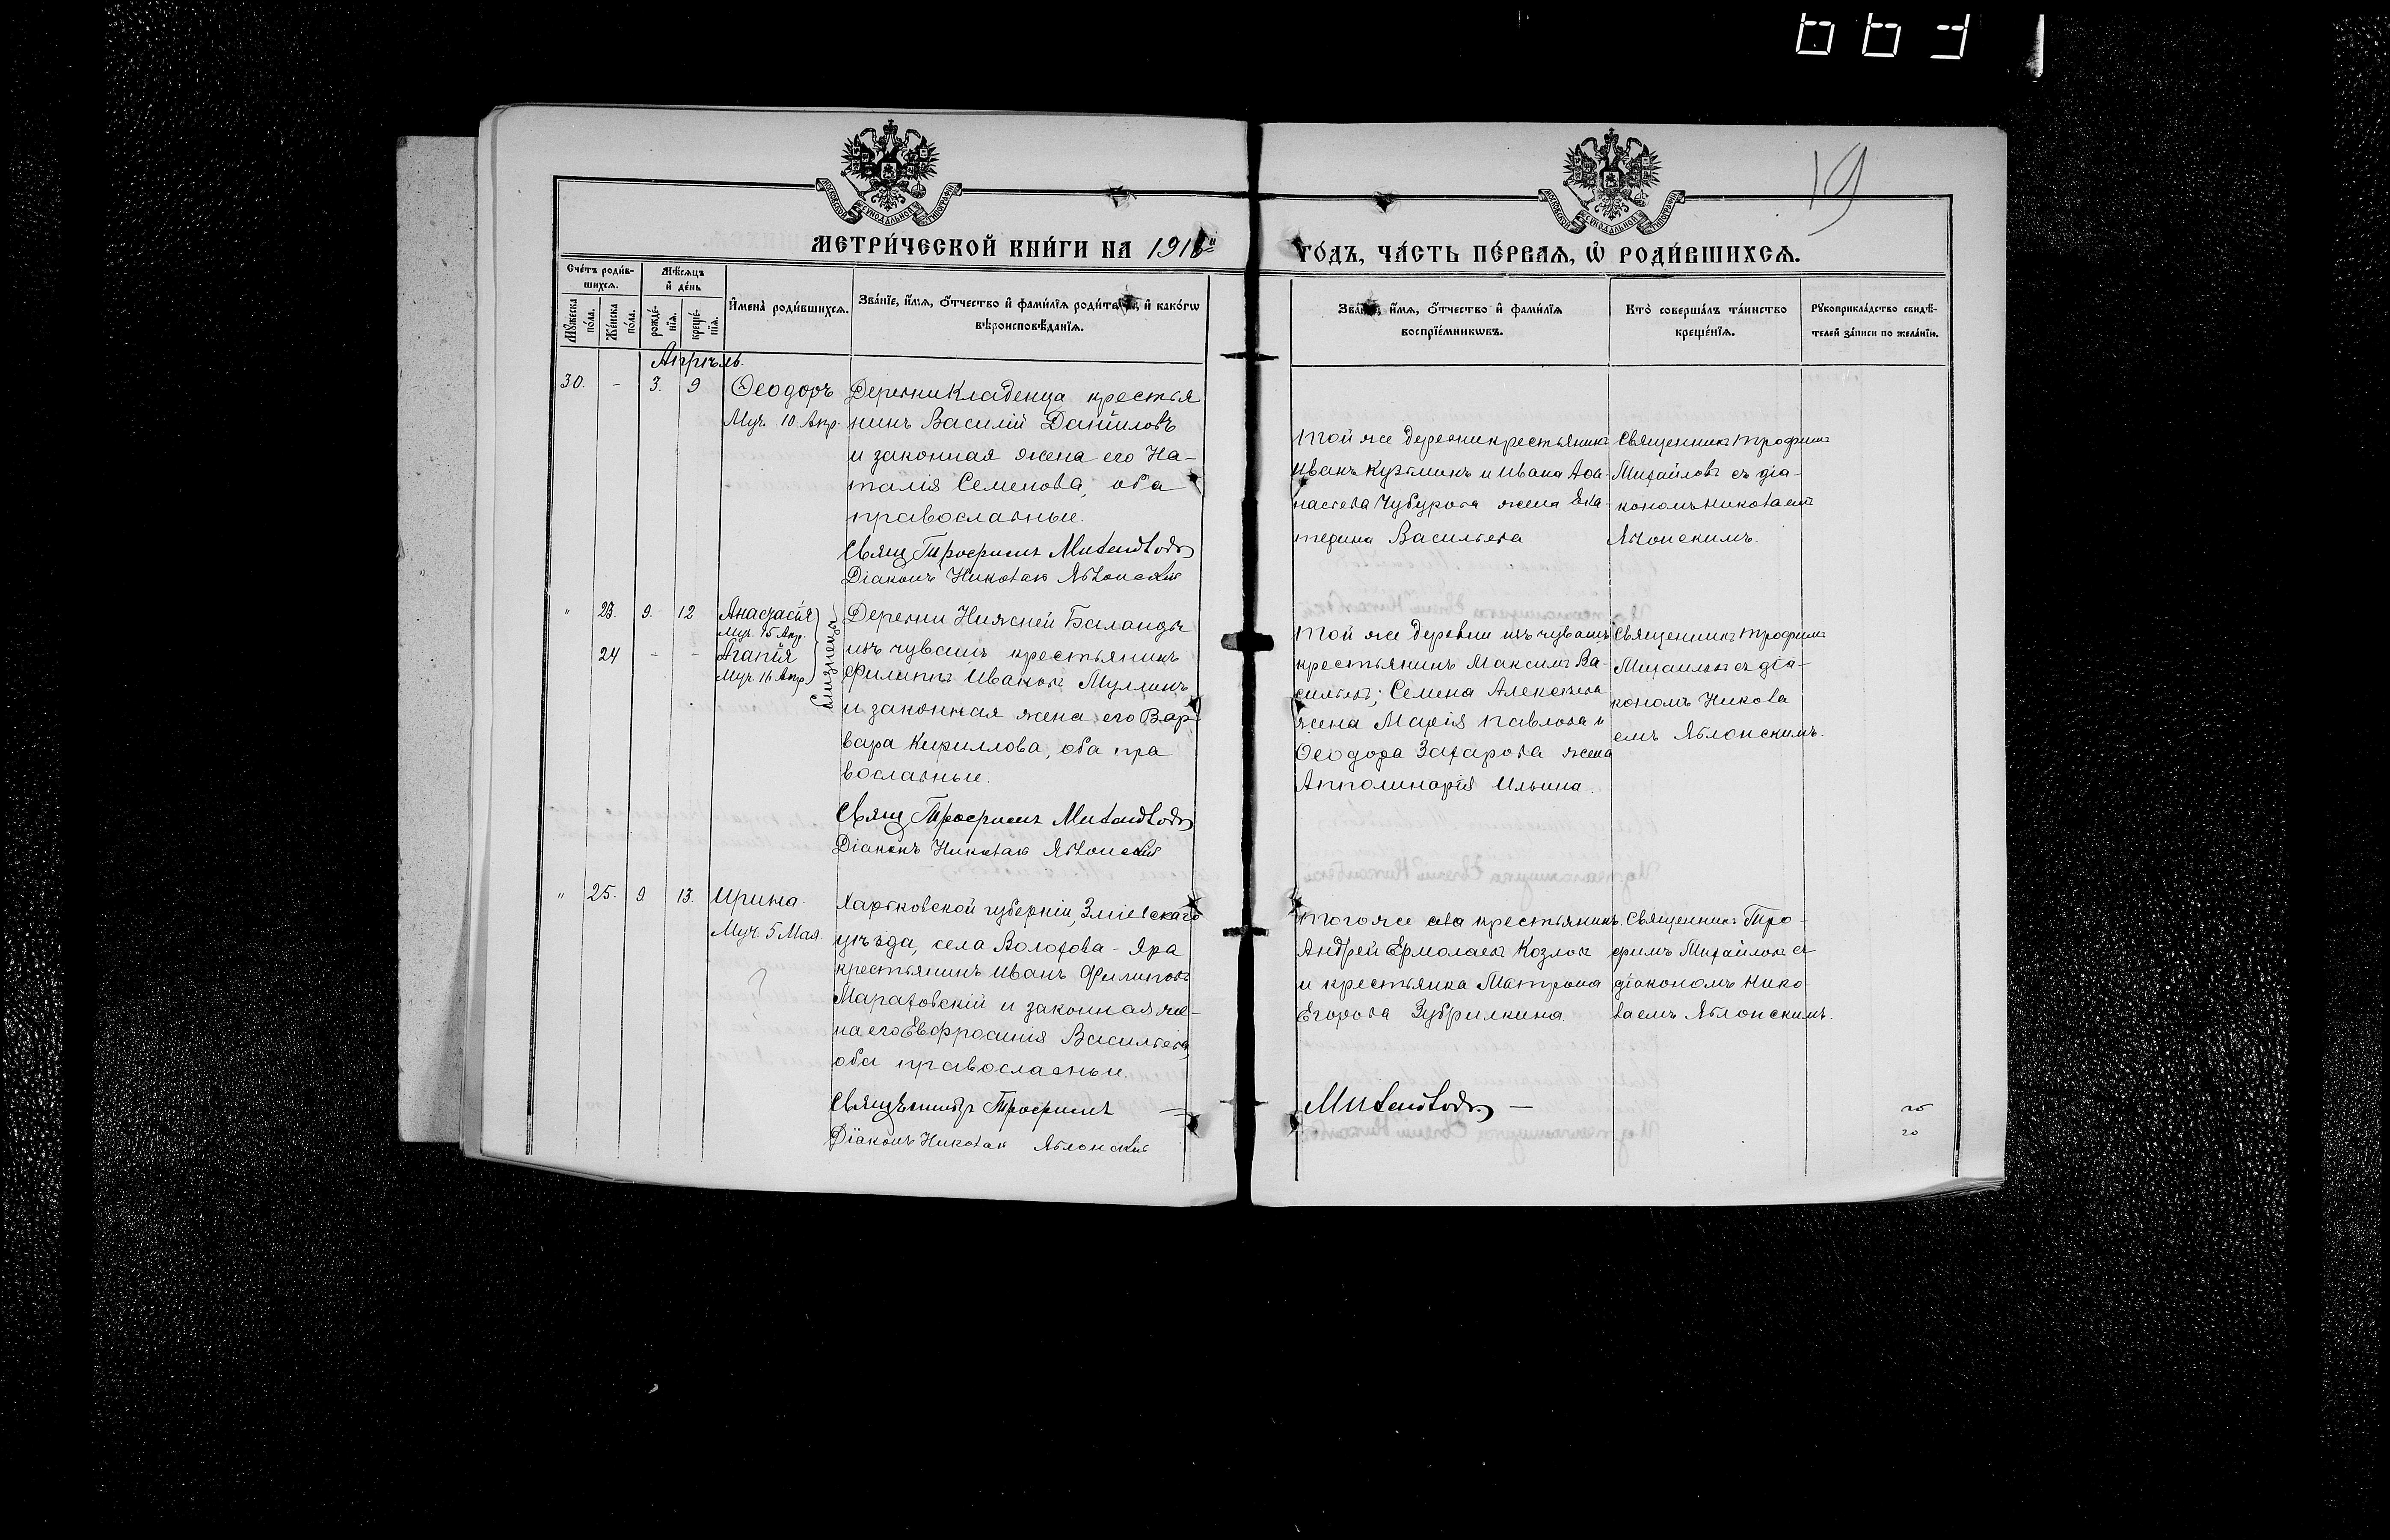 19
МЕТРИ́ЧЕСКОЙ КНИ́ГИ НА 1916й
ГО́ДЪ, ЧА́СТЬ ПЕ́РВАЯ, Ѽ РОДИ́ВШИХСЯ.
Сче́тъ роди́в-
шихся.
Мѣ́сяцъ
и҆ де́нь
Мꙋ́жеска
по́ла.
Же́нска
по́ла.
рожде́-
нїя.
креще́-
нїя.
И҆мена̀ роди́вшихся.
Зва́нїе, и҆́мя, ѻ҆́тчество и҆ фами́лїя роди́телей, и҆ како́гѡ
вѣроисповѣ́данїя.
Зва́нїе, и҆́мя, ѻ҆́тчество и҆ фами́лїя
воспрїе́мникѡвъ.
Кто̀ соверша́лъ та́инство
креще́нїя.
Рꙋкоприкла́дство свидѣ́-
телей за́писи по жела́нїю.
Апрѣль
30. - 3. 9 Ѳеодоръ
Муч. 10 Апр.
Деревни Кладенца крестья
нинъ Василій Даніиловъ
и законная жена его На-
талія Семенова, оба
православные.
Свящ Трофимъ Михайловъ
Діаконъ Николай Яблонскій
Той же деревни крестьянинъ
Иванъ Кузьминъ и Ивана Аѳа-
насьева Чубурова жена Ека-
терина Васильева
Священникъ Трофимъ
Михайловъ съ діа-
кономъ Николаемъ
Яблонскимъ.
" 23. 9. 12 Анастасія
Муч. 15 Апр.
24 - - Агапія
Муч. 16 Апр.
близнецы
Деревни Нижней Баланды
изъ чувашъ крестьянинъ
Филиппъ Ивановъ Муллинъ
и законная жена его Вар-
вара Кириллова, оба пра
вославные.
Свящ Трофимъ Михайловъ
Діаконъ Николай Яблонскій
Той же деревни изъ чувашъ
крестьянинъ Максимъ Ва-
сильевъ; Семена Алексѣева
жена Марія Павлова и
Ѳеодора Захарова жена
Апполинарія Ильина.
Священникъ Трофимъ
Михаиловъ съ діа-
кономъ Никола
емъ Яблонскимъ.
" 25. 9 13. Ирина.
Муч. 5 Мая.
?
Харьковской губерніи, Зміевскаго
уѣзда, села Волохова-Яра
крестьянинъ Иванъ Филиповъ
Мараховскій и законная же-
на его Евфросинія Васильева,
оба православные.
Священникъ Трофимъ —
Діаконъ Николай Яблонскій
Того же села крестьянинъ
Андрей Ермолаевъ Козловъ
и крестьянка Матрона
Егорова Зубрилкина.
Михайловъ —
Священникъ Тро-
фимъ Михайловъ съ
діакономъ Нико-
лаемъ Яблонскимъ.
20